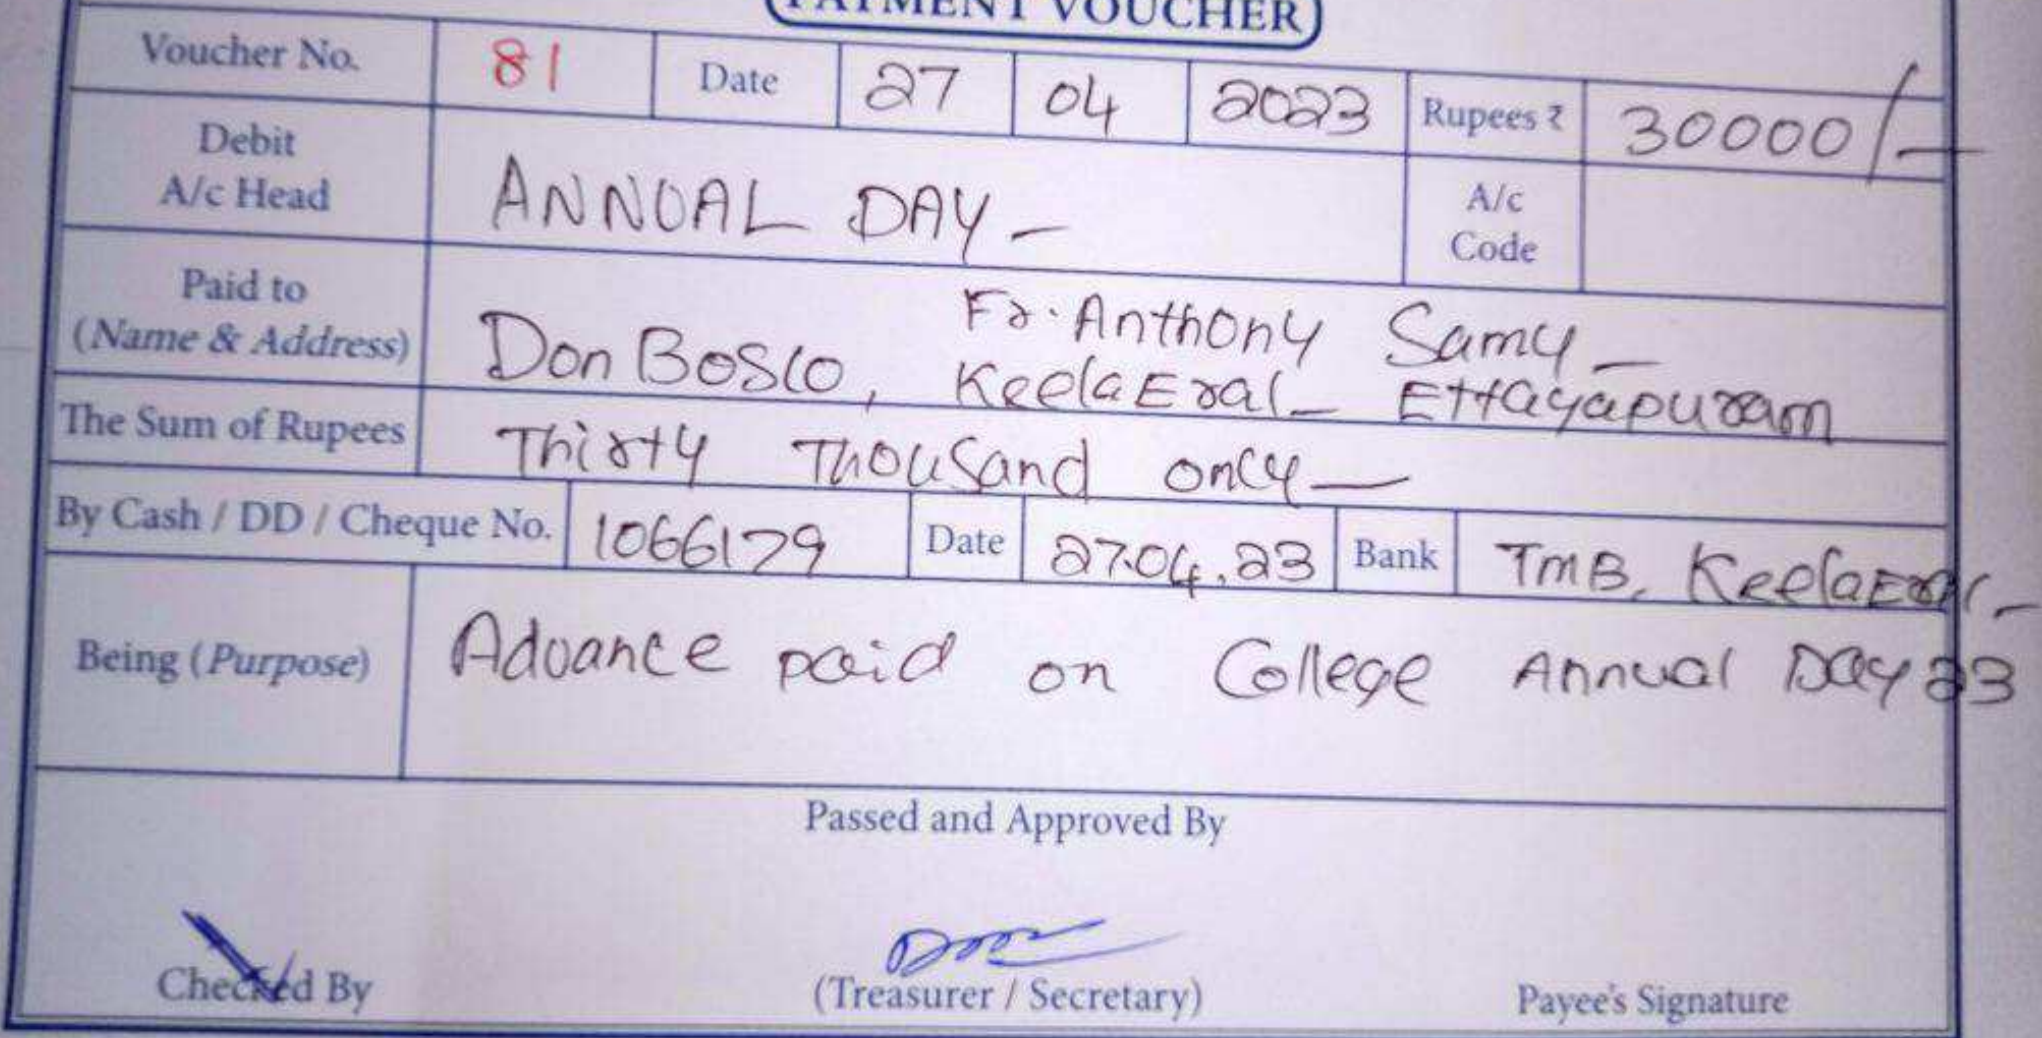 PAYMENT VOUCHER
Voucher No. 81 Date 27 04 2023 Rupees ₹ 30000/-
Debit A/c Head ANNUAL DAY - A/c Code
Paid to (Name & Address) Fr. Anthony Samy -
Don Bosco, KeelaEral - Ettayapuram
The Sum of Rupees Thirty Thousand only -
By Cash / DD / Cheque No. 1066179 Date 27.04.23 Bank TMB, KeelaEral -
Being (Purpose) Advance paid on College Annual Day 23
Passed and Approved By
Checked By (Treasurer / Secretary) Payee's Signature